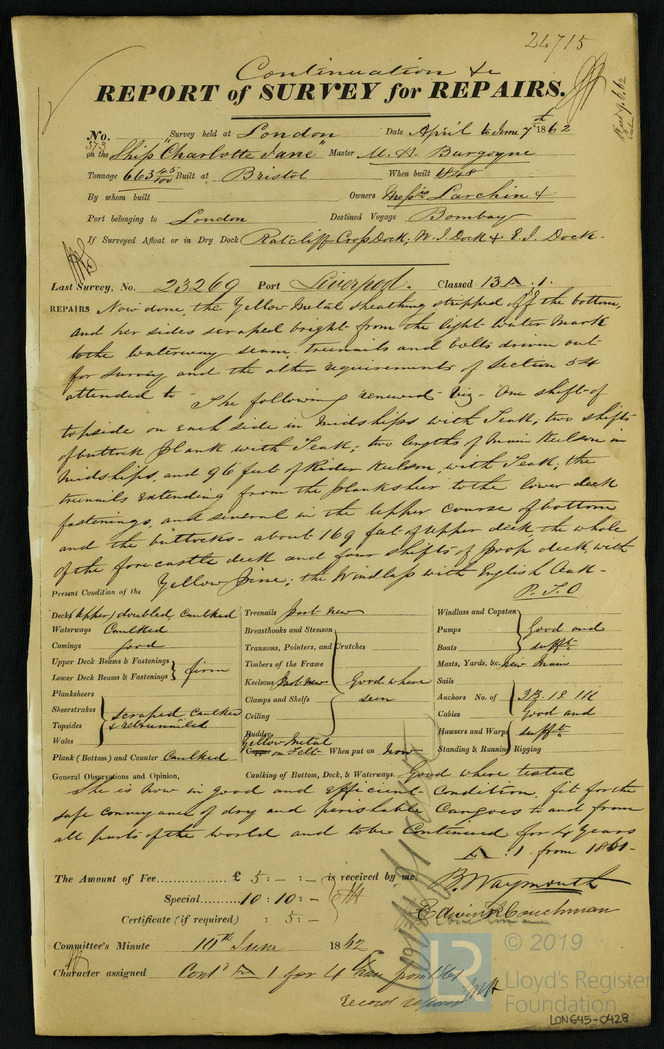 24715
Continuation &c
REPORT of SURVEY for REPAIRS.
No. 373 Survey held at London Date April to June 7th 1862
on the Ship "Charlotte Jane" Master M. A. Burgoyne
Tonnage 663 45/100 Built at Bristol When built 1848
By whom built Owners Messrs Larchin &
Port belonging to London Destined Voyage Bombay
If Surveyed Afloat or in Dry Dock Ratcliff Cross Dock, W. I. Dock & E. I. Dock
Last Survey, No. 23269 Port Liverpool. Classed 13 A.1.
REPAIRS Now done, the Yellow Metal Sheathing stripped off the bottom,
and her sides scraped bright from the light Water Mark
to the Waterway seam, treenails and bolts driven out
for survey and the other requirements of Section 54
attended to - The following renewed viz - One shift of
topside on each side in Midships with Teak; two shifts
of buttock plank with Teak; two lengths of Main Keelson in
Midships, and 96 feet of Rider Keelson, with Teak; the
treenails extending from the planksheer to the lower deck
fastenings, and several in the upper course of bottom
and the buttocks - about 169 feet of upper deck, the whole
of the forecastle deck and four shifts of poop deck, with
Yellow Pine; the Windlass with English Oak -
P.T.O
Present Condition of the
Deck (Upper) doubled, caulked
Waterways Caulked
Comings Good
Upper Deck Beams & Fastenings
Lower Deck Beams & Fastenings } firm
Planksheers
Sheerstrakes
Topsides
Wales } scraped, caulked & retreenailed
Plank (Bottom) and Counter Caulked
Treenails part new
Breasthooks and Stemson
Transoms, Pointers, and Crutches
Timbers of the Frame
Keelsons Part new } Good where
Clamps and Shelfs seen
Ceiling
Rudder
Yellow Metal
Copper on Felt When put on Now
Caulking of Bottom, Deck, & Waterways. Good where tested
Windlass and Capstan
Pumps } Good and
Boats sufft
Masts, Yards, &c. New Main
Sails
Anchors No. of 3B. 1S. 1K
Cables Good and
Hawsers and Warps sufft
Standing & Running Rigging
General Observations and Opinion,
She is now in good and efficient Condition, fit for the
safe conveyance of dry and perishable Cargoes to and from
all parts of the world and to be Continued for 4 Years
A.1. from 1861 -
The Amount of Fee £ 5 : - : - is received by me,
Special 10 : 10 : -
Certificate (if required) : 5 : -
B. Waymouth
Edwin R Couchman
Committee's Minute 10th June 1862
Character assigned Contd A 1 for 4 Years from 1861
record repairs
© 2019
LR
Lloyd's Register
Foundation
LON645-0428